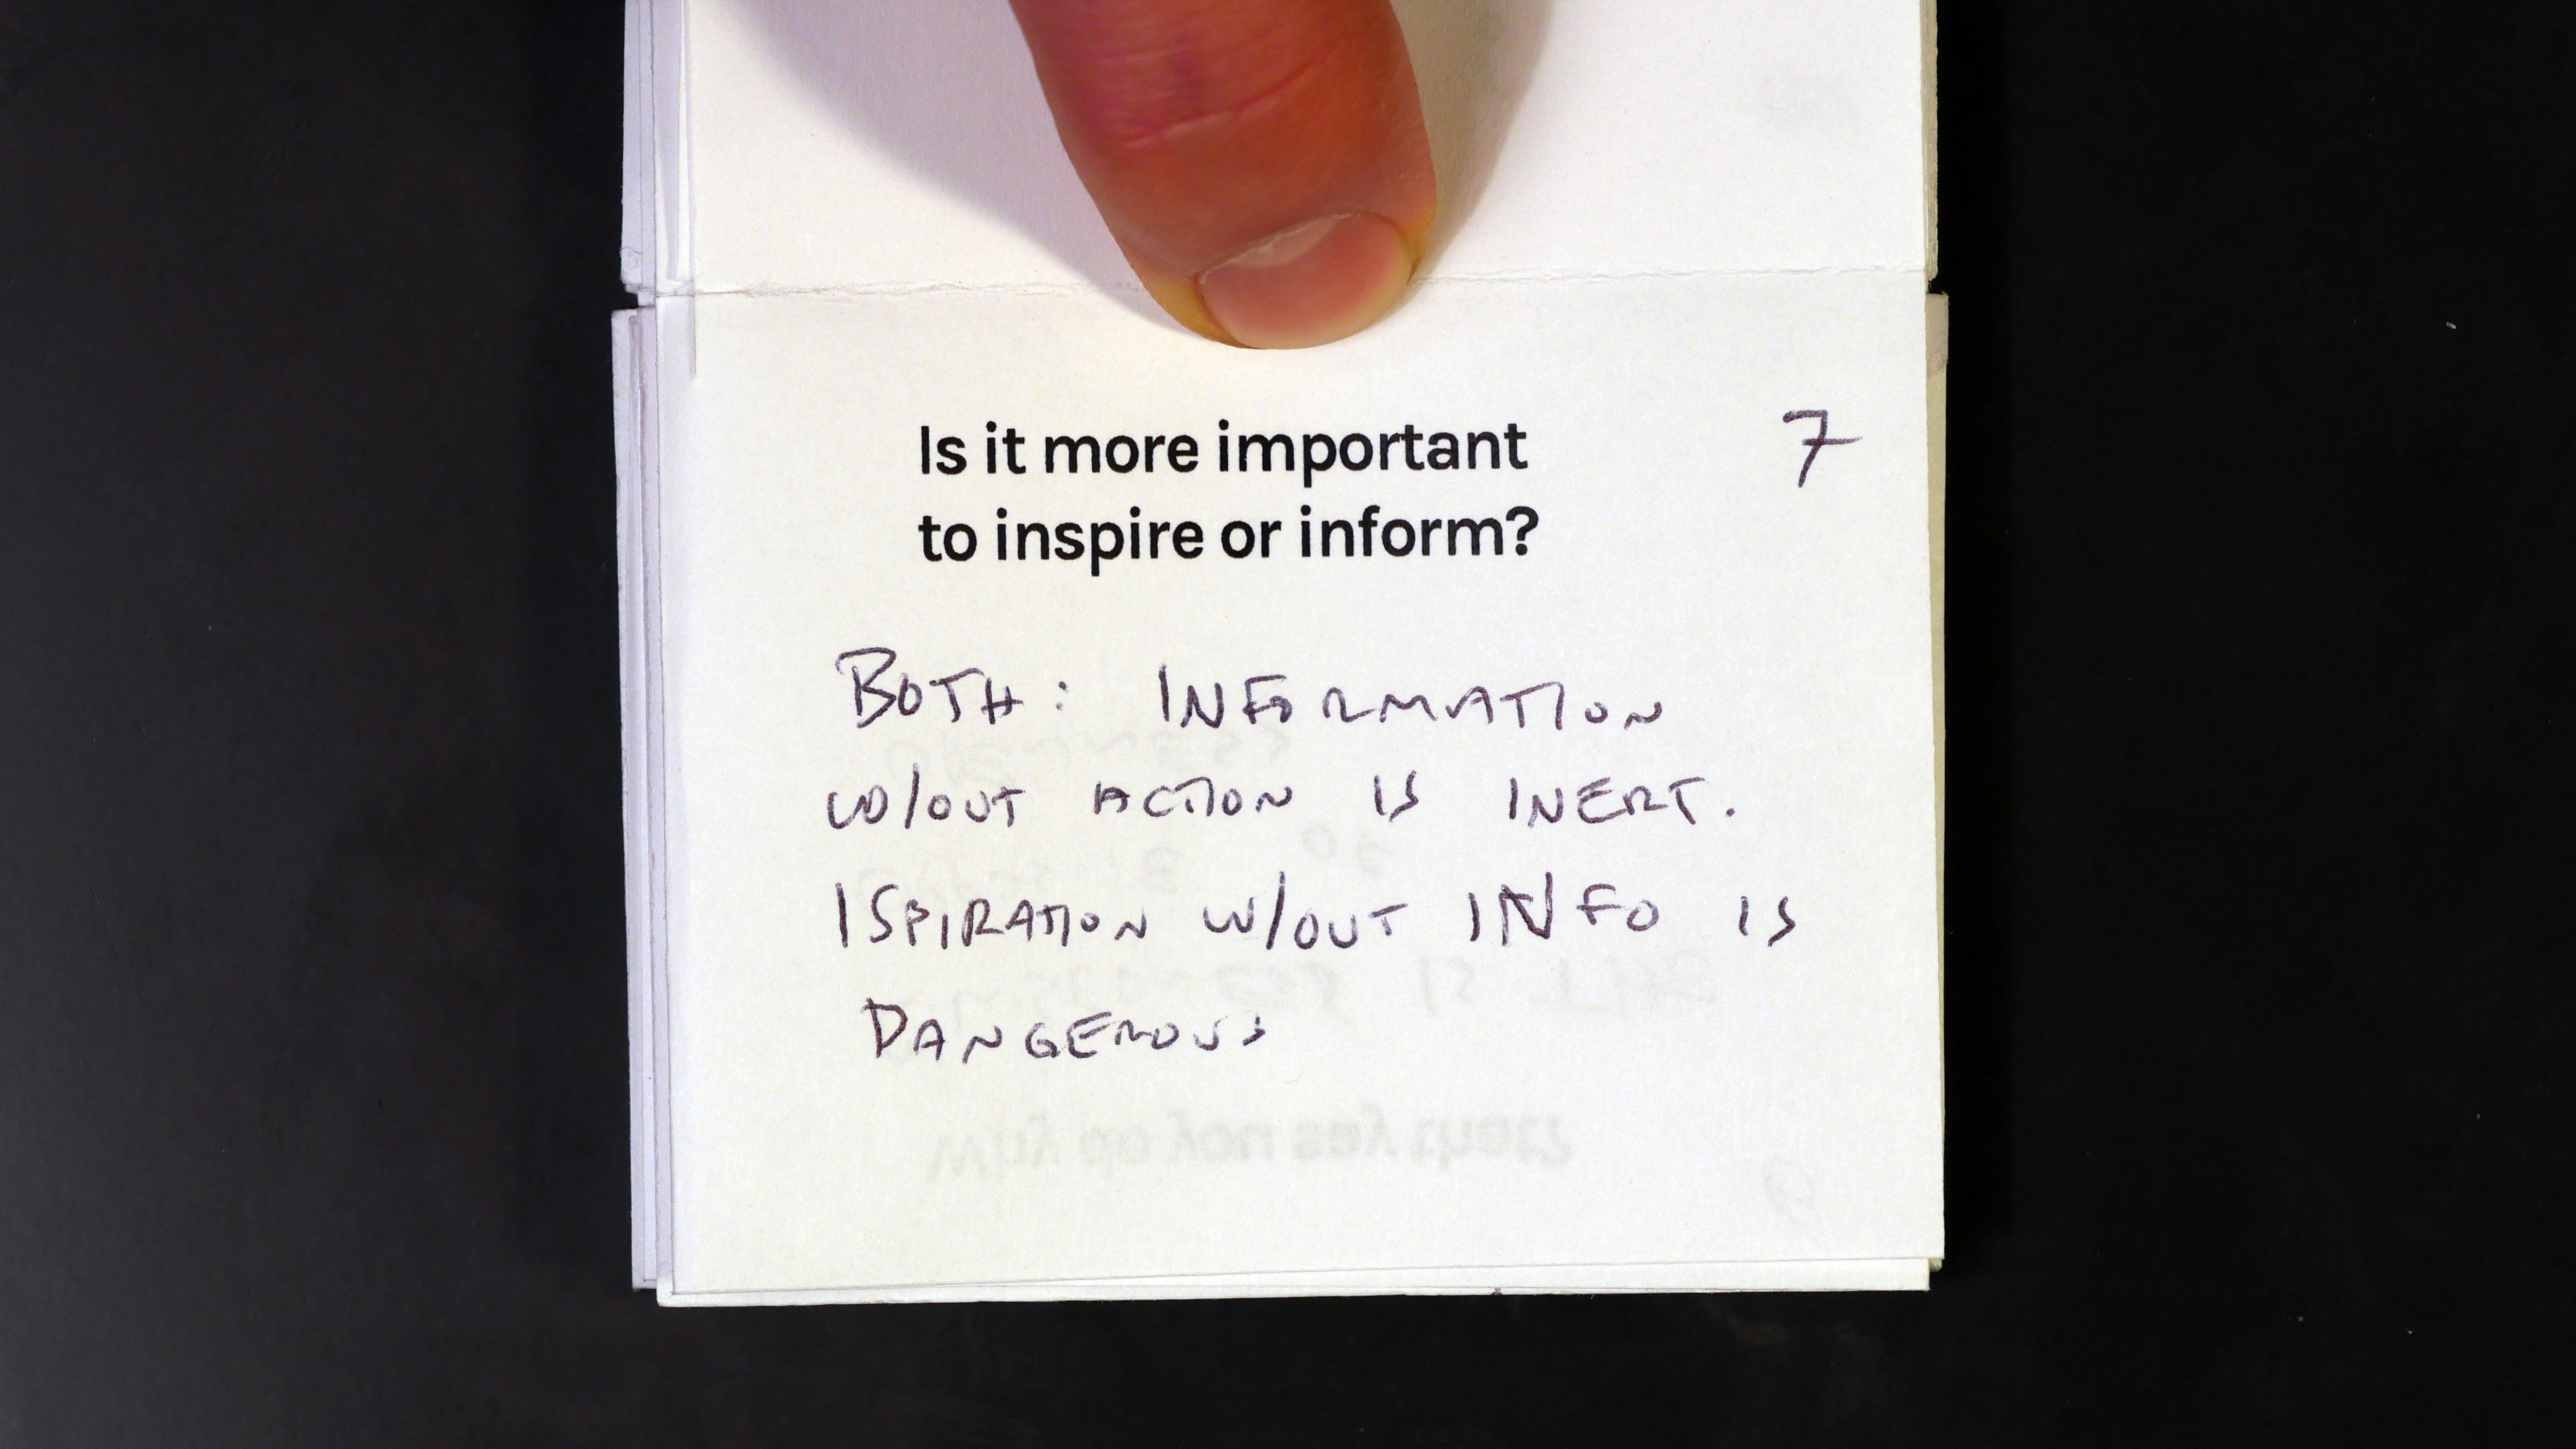 Is it more important
7
to inspire or inform?
BOTH: INFORMATION
W/OUT ACTION IS INERT.
ISPIRATION W/OUT INFO IS
DANGEROUS